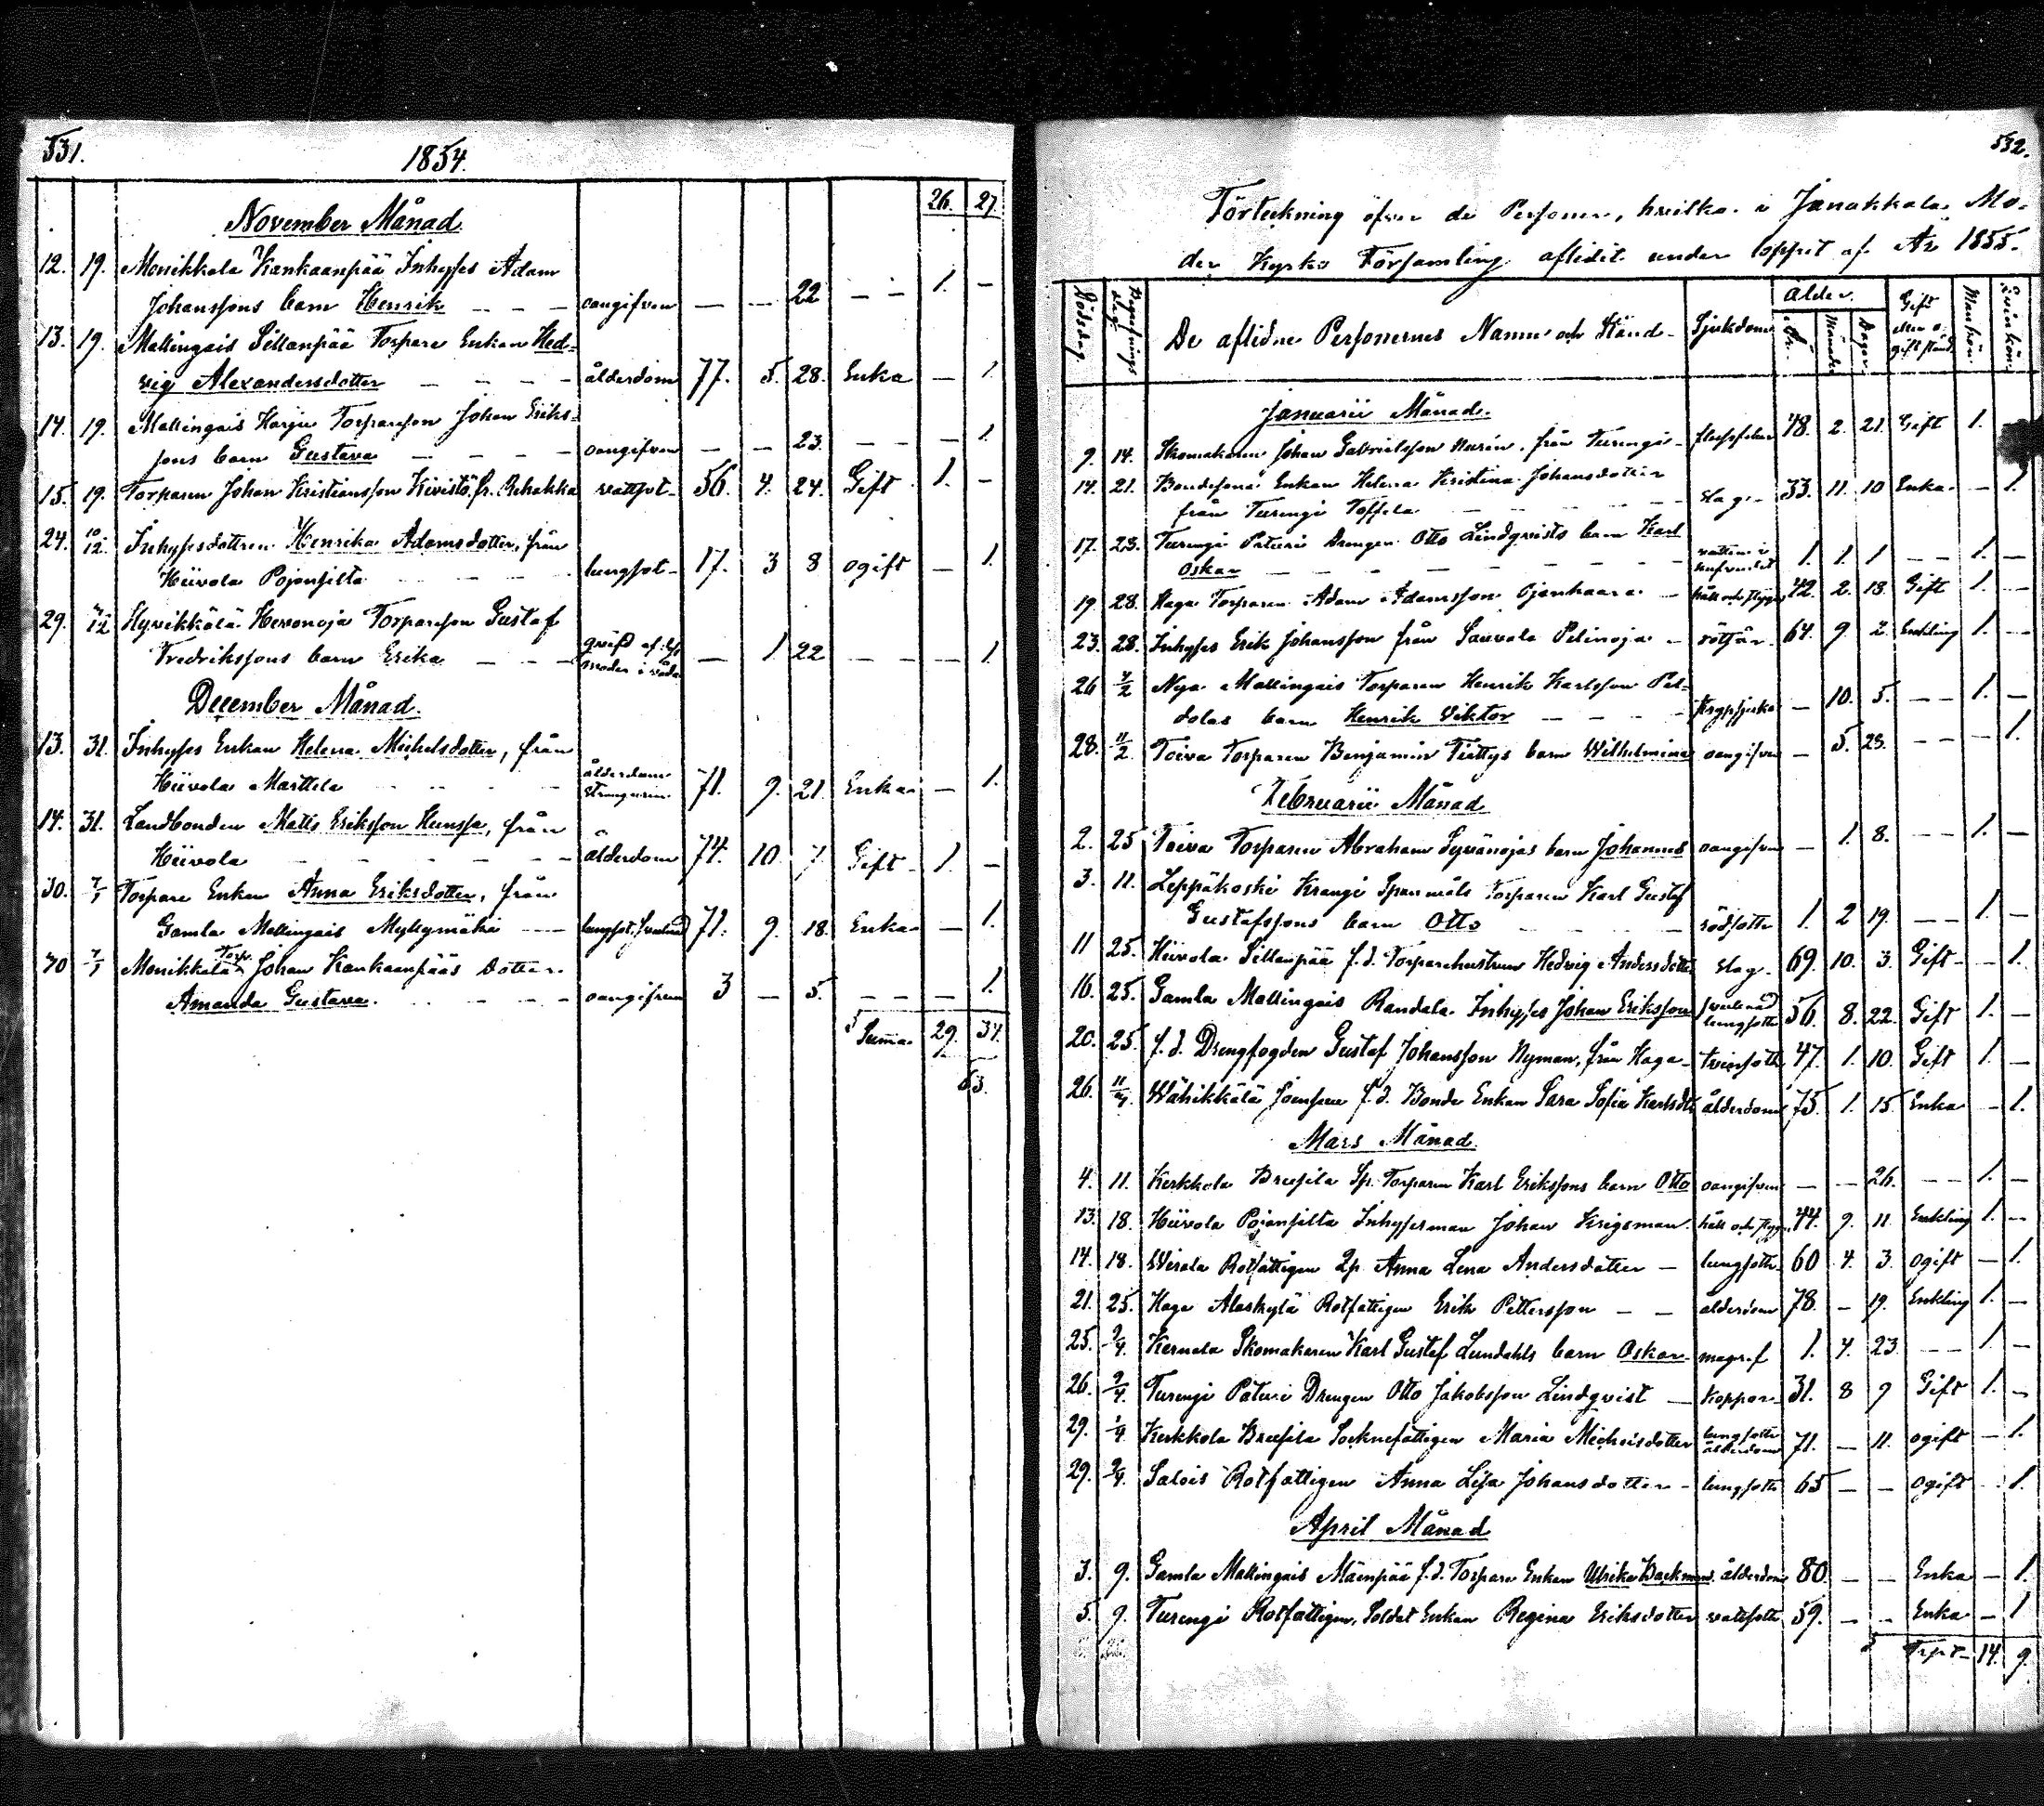 531.
1854.
26. 27
November Månad
12. 19. Monikkala Kankaanpää Inhyses Adam
Johanssons barn Henrik — — — oangifven — — 22 — — 1. —
13. 19. Mallingais Sillanpää Torpare Enkan Hed-
vig Alexandersdotter — — — — ålderdom 77. 5. 28. Enka — 1.
14. 19. Mallingais Harju Torparson Johan Eriks-
sons barn Gustava — — — — oangifven — — 23. — — — 1.
15. 19. Torparen Johan Kristiansson Kivistö, fr. Rehakka vattsot- 56. 4. 24. Gift 1. —
24. 10/12. Inhysesdottren Henrika Adamsdotter, från
Hiivola Pojansilta — — — lungsot- 17. 3 8 ogift — 1.
29. Hyvikkälä Hevonoja Torparson Gustaf
Fredrikssons barn Erika — — — qväfd af modren — 1. 22 — — — 1.
December Månad.
13. 31. Inhyses Enkan Helena Michelsdotter, från
Hiivola Marttila — — — ålderdom 71. 9. 21. Enka — 1.
14. 31. Landbonden Matts Eriksson Hunssa, från
Hiivola — — — — — — ålderdom 74. 10. 7. Gift 1. —
30. 7/1 Torpare Enkan Anna Eriksdotter, från
Gamla Mallingais Myllymäki — — 71. 9. 18. Enka — 1.
30 7/1 Monikkala Torp. Johan Kankaanpääs Dotter
Amanda Gustava. — — — — oangifven 3 — 5. — — — 1.
Suma 29. 34.
63.
532.
Förteckning öfver de Personer, hvilka i Janakkala Mo-
der Kyrko Församling aflidit under loppet af År 1855.
Dödsdag Begrafnings dag De aflidne Personernes Namn och Stånd Sjukdom Ålder. År. Månader Dagar Gift eller o- gift stånd Mankön Qvinkön
Januarii Månad.
9. 14. Skomakaren Johan Gabrielsson Nurin, från Turengi 48. 2. 21. Gift 1.
14. 21. Bondesona Enkan Helena Kristina Johansdotter
från Turengi Toffela — — — — slag 33. 11. 10 Enka — 1.
17. 23. Turengi Paturi Drengen Otto Lindqvists barn Karl
Oskar — — — — — — — — vatten i hufvudet 1. 1. 1 — — 1. —
19 28. Haga Torparen Adam Adamsson Ojanhaara — håll och styng 42. 2. 18. Gift 1. —
23. 28. Inhyses Erik Johansson från Sauvala Pelinoja — rötsår 64. 9 2. Enkling 1. —
26 4/2 Nya Mallingais Torparen Henrik Karlsson Pel-
dolas barn Henrik Viktor — — — — strypsjuka — 10. 5. — — 1. —
28. 11/2. Toiva Torparen Benjamin Tiittys barn Wilhelmina oangifven — 5. 23. — — — 1.
Februarii Månad
2. 25 Toiva Torparen Abraham Syvänojas barn Johannes oangifven — 1. 8. — — 1. —
3. 11. Leppäkoski Krangi Spanmåls Torparen Karl Gustaf
Gustafssons barn Otto — — — — rödsoth 1. 2 19. — — 1. —
11 25. Hiivola Sillanpää f.d. Torparehustrun Hedvig Andersdotter slag 69. 10. 3. Gift — 1.
16. 25. Gamla Mallingais Randala Inhyses Johan Eriksson lungsoth 56. 8. 22. Gift 1. —
20. 25. f.d. Drengfogden Gustaf Johansson Nyman, från Haga tvinsoth 47. 1. 10. Gift 1. —
26. Wähikkälä f.d. Bonde Enkan Sara Sofia Karlsdtr ålderdom 75. 1. 15. Enka — 1.
Mars Månad.
4. 11. Kerkkola Bruusila Sp. Torparen Karl Erikssons barn Otto oangifven — — 26. — — 1. —
13. 18. Hiivola Pojansilta Inhysesman Johan Krigsman håll och styng 44. 9. 11. Enkling 1. —
14. 18. Wirala Rotfattigen Qp. Anna Lena Andersdotter — lungsoth 60 4. 3. ogift — 1.
21. 25. Haga Alaskylä Rotfattigen Erik Pettersson — — ålderdom 78. — 19. Enkling 1. —
25. 9/4. Kernala Skomakaren Karl Gustaf Lundahls barn Oskar 1. 4. 23. — — 1. —
26. 9/4. Turengi Paturi Drengen Otto Jakobsson Lindqvist — koppor 31. 8 9 Gift 1. —
29. 1/4. Kerkkola Bruusila Socknefattigen Maria Michelsdotter lungsoth ålderdom 71. — 11. ogift — 1.
29. 9/4. Salois Rotfattigen Anna Lisa Johansdotter — lungsoth 65 — — ogift — 1.
April Månad
3. 9. Gamla Mallingais Mäenpää f.d. Torpare Enkan Ulrika Backman ålderdom 80. — — Enka — 1.
5. 9. Turengi Rotfattigen, Soldat Enkan Regina Eriksdotter vattsoth 59. — — Enka — 1
Trpt 14. 9.